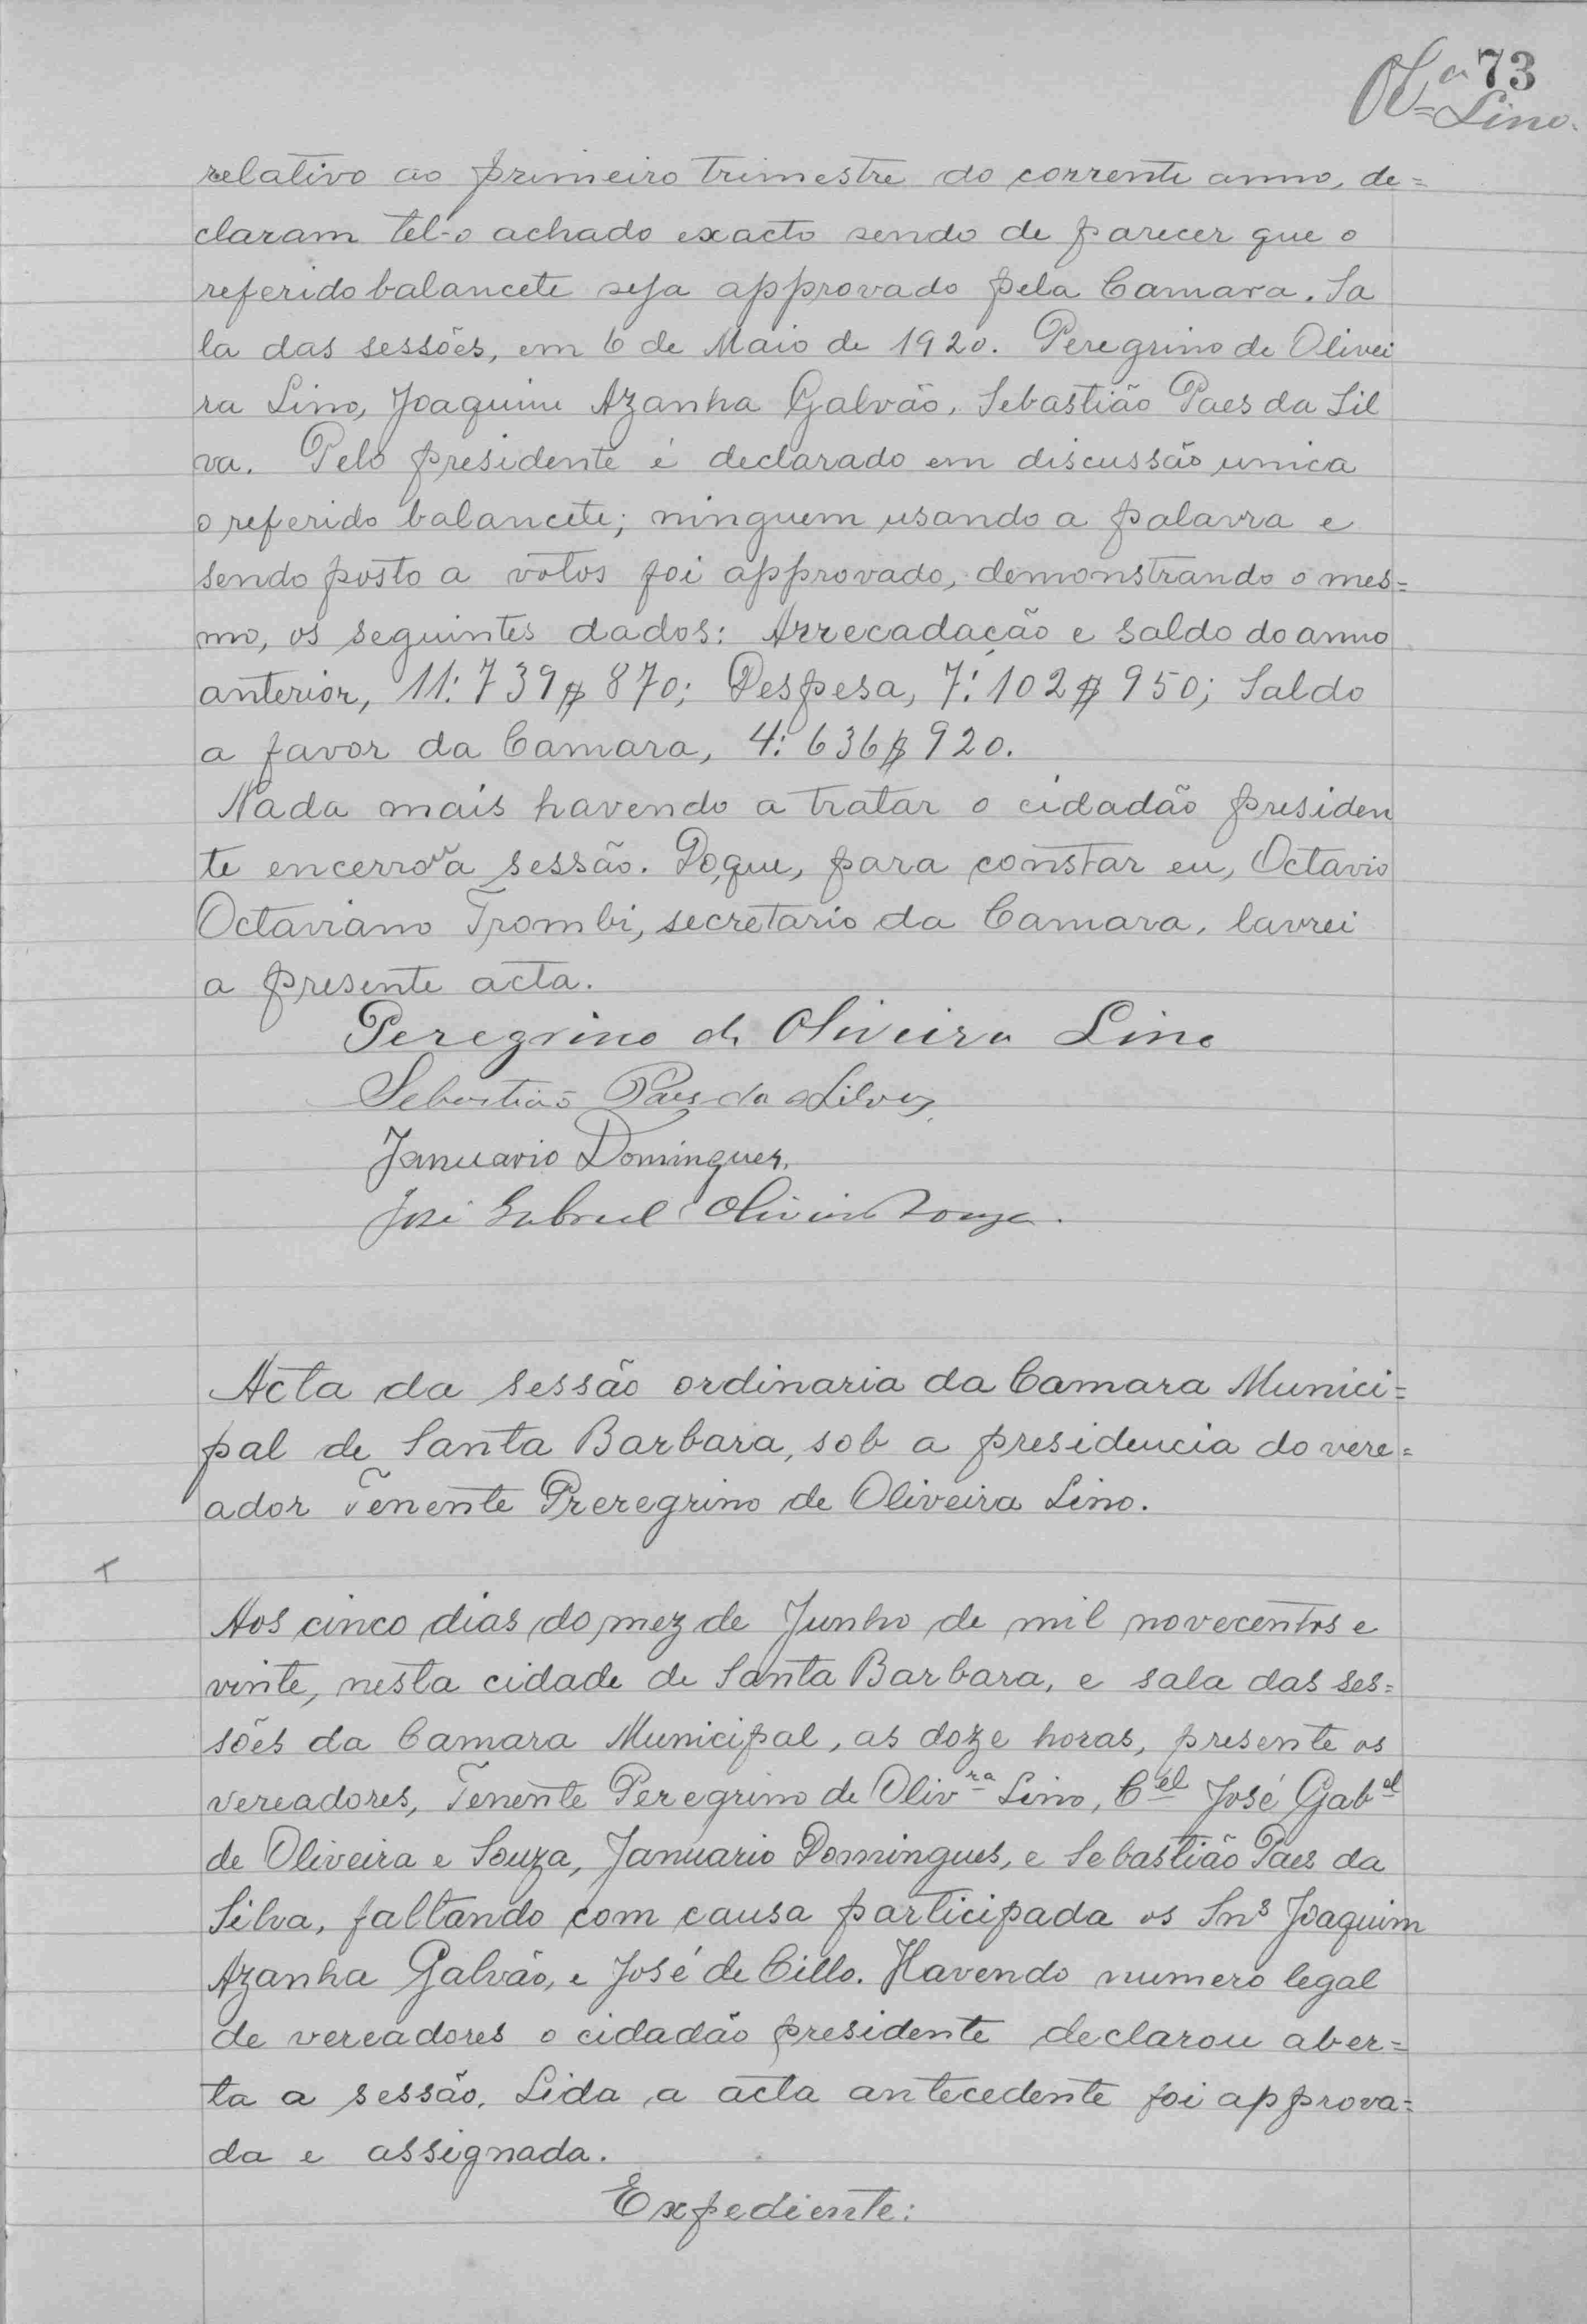 73
Olª Lino.
relativo ao primeiro trimestre do corrente anno, de=
claram tel-o achado exacto sendo de parecer que o
referido balancete seja approvado pela Camara. Sa
la das sessões, em 6 de Maio de 1920. Peregrino de Olivei
ra Lino, Joaquim Azanha Galvão, Sebastião Paes da Sil
va. Pelo presidente é declarado em discussão unica
o referido balancete; ninguem usando a palavra e
sendo posto a votos foi approvado, demonstrando o mes=
mo, os seguintes dados: Arrecadação e saldo do anno
anterior, 11:739$870; Despesa, 7:102$950; Saldo
a favor da Camara, 4:636$920.
Nada mais havendo a tratar o cidadão presiden
te encerrou a sessão. Do,que, para constar eu, Octavio
Octaviano Trombi, secretario da Camara, lavrei
a presente acta.
Peregrino de Oliveira Lino
Sebastião Paes da Silva
Januario Domingues.
José Gabriel Oliveira Souza.
Acta da sessão ordinaria da Camara Munici=
pal de Santa Barbara, sob a presidencia do vere=
ador Tenente Preregrino de Oliveira Lino.
Aos cinco dias do mez de Junho de mil novecentos e
vinte, nesta cidade de Santa Barbara, e sala das ses=
sões da Camara Municipal, as doze horas, presente os
vereadores, Tenente Peregrino de Olivra Lino, Cel José Gabel
de Oliveira e Souza, Januario Domingues, e Sebastião Paes da
Silva, faltando com causa participada os Sns Joaquim
Azanha Galvão, e José de Cillo. Havendo numero legal
de vereadores o cidadão presidente declarou aber=
ta a sessão. Lida a acta antecedente foi approva=
da e assignada.
Expediente: